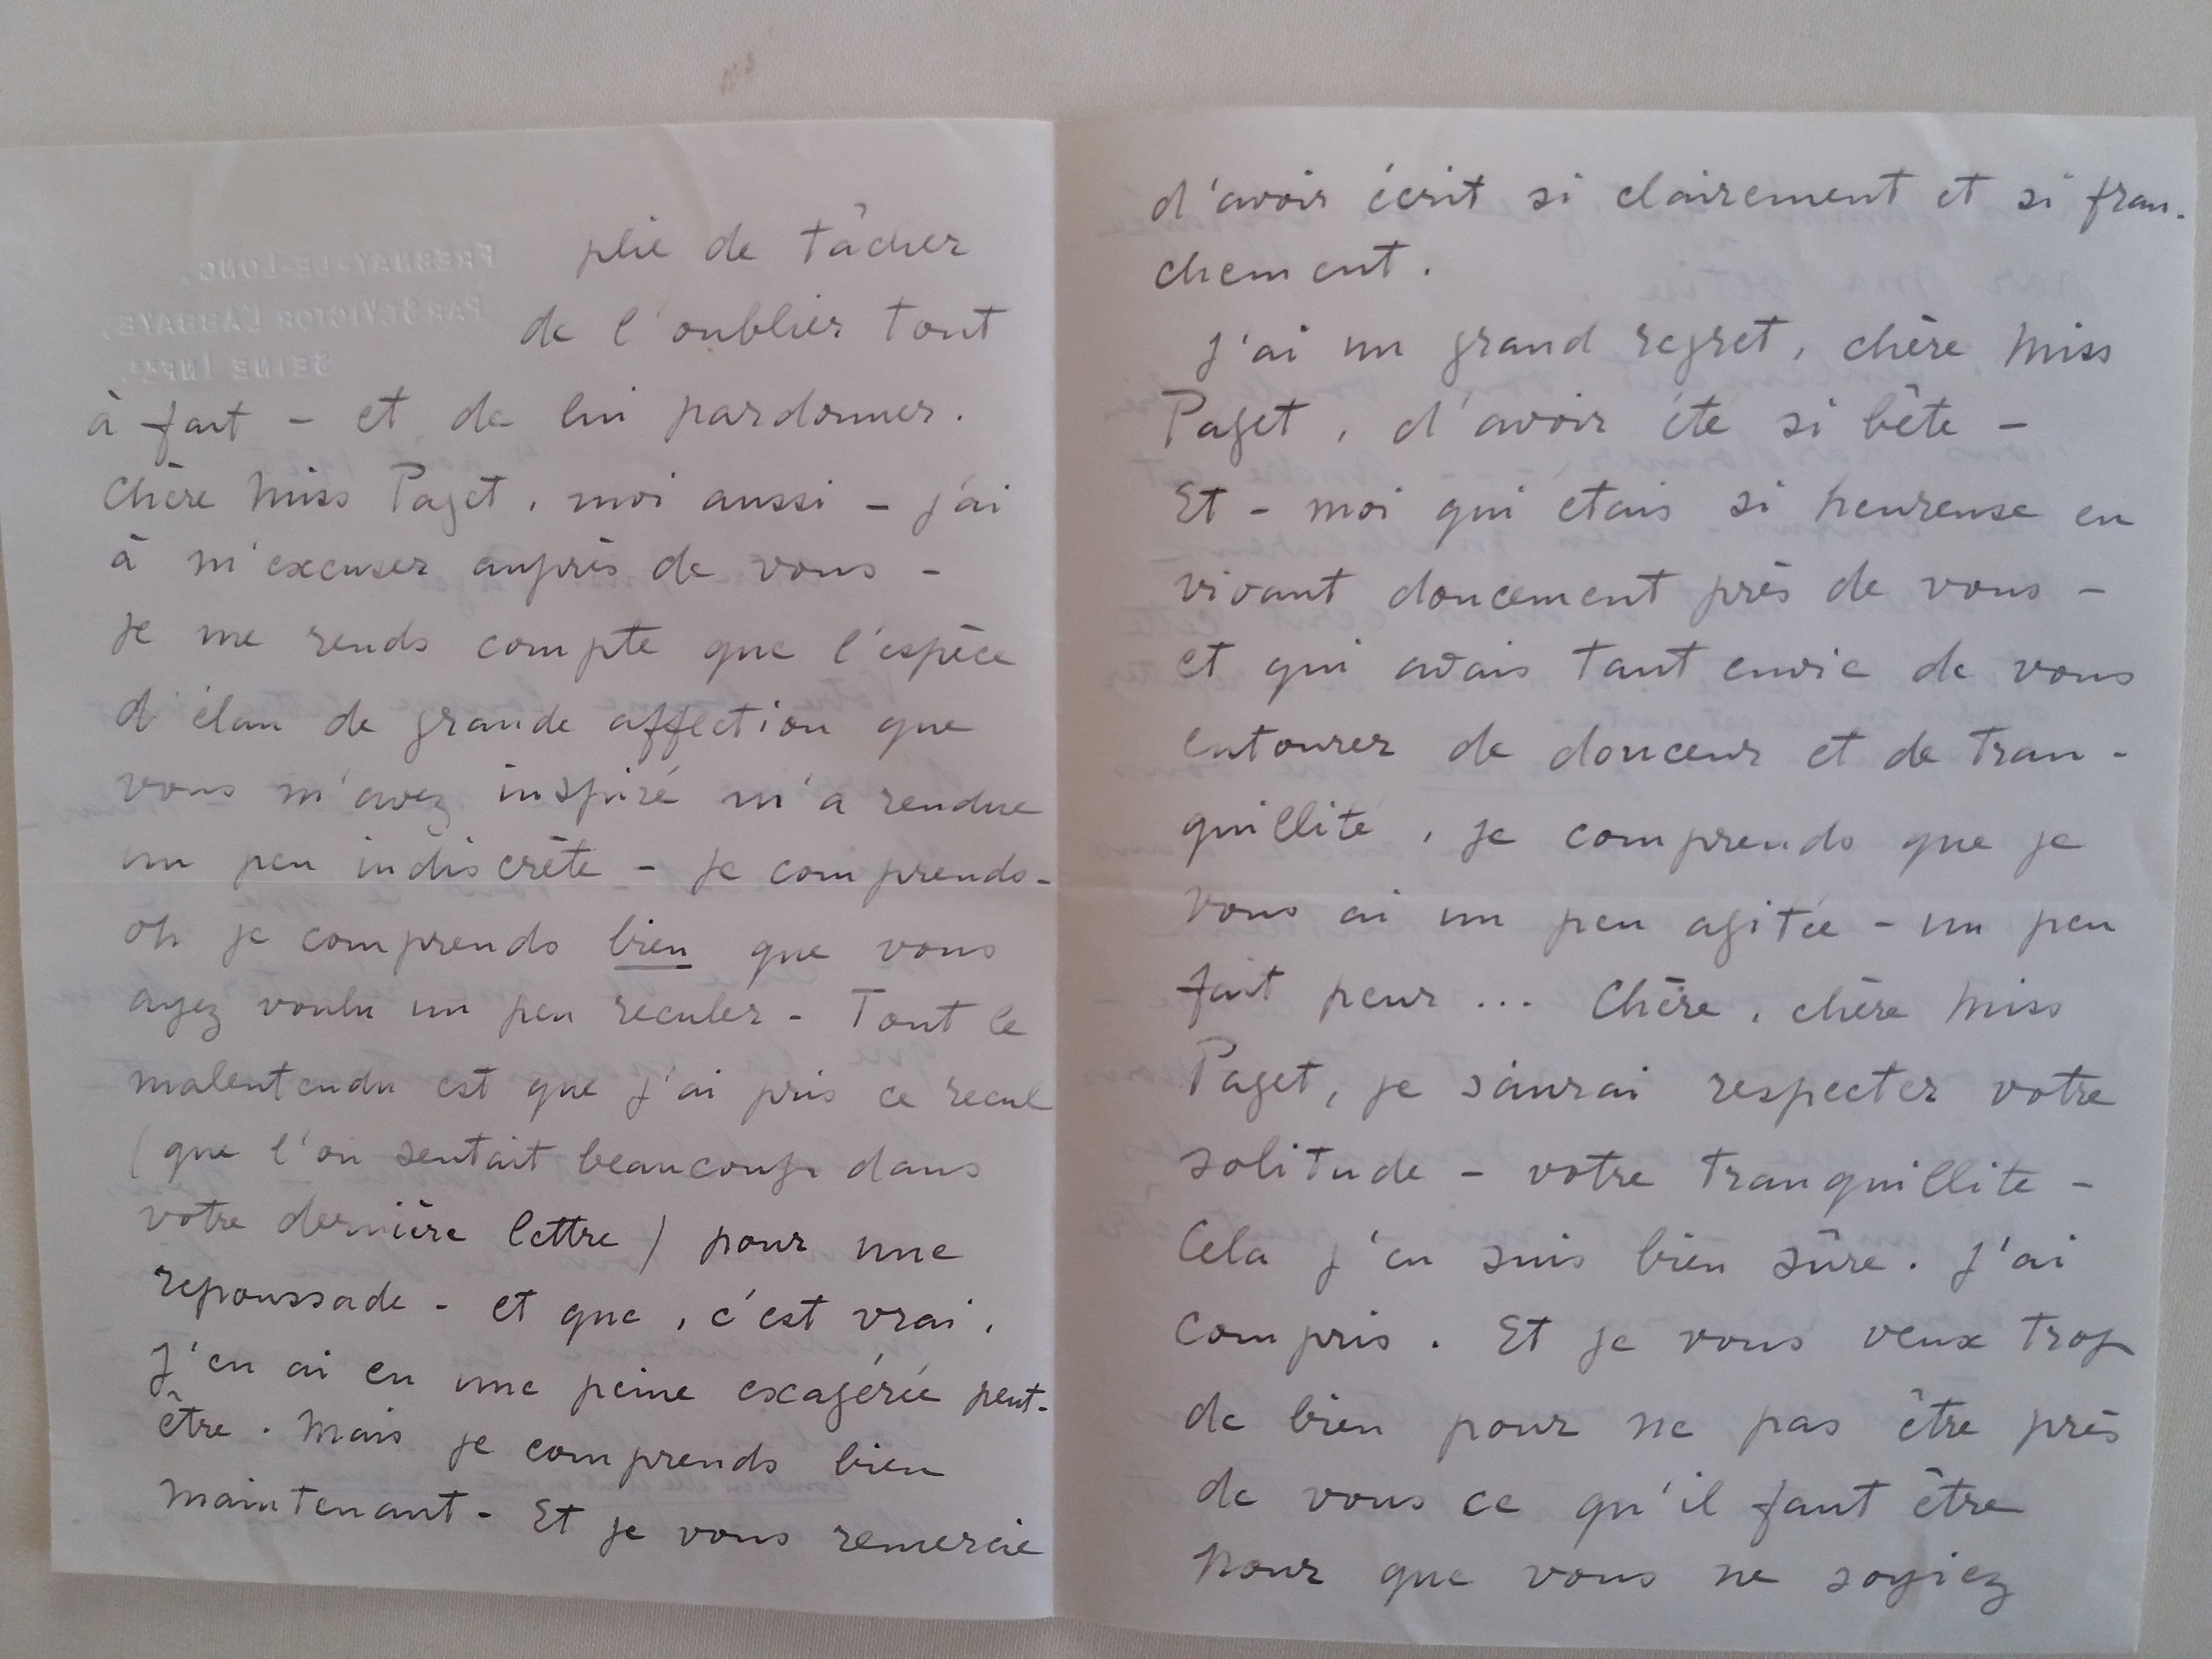 FRESNAY-LE-LONG,
PAR ST VICTOR L'ABBAYE,
SEINE INFRE.
plie de tâcher
de l'oublier tout
à fait – et de lui pardonner.
Chère Miss Paget, moi aussi – j'ai
à m'excuser auprès de vous –
je me rends compte que l'espèce
d'élan de grande affection que
vous m'avez inspiré m'a rendue
un peu indiscrète – je comprends –
oh je comprends bien que vous
ayez voulu un peu reculer – Tout le
malentendu est que j'ai pris ce recul
(que l'on sentait beaucoup dans
votre dernière lettre) pour une
repoussade – et que, c'est vrai,
j'en ai eu une peine exagérée peut-
être. Mais je comprends bien
maintenant – Et je vous remercie
d'avoir écrit si clairement et si fran-
chement.
J'ai un grand regret, chère Miss
Paget, d'avoir été si bête –
Et – moi qui étais si heureuse en
vivant doucement près de vous –
et qui avais tant envie de vous
entourer de douceur et de tran-
quillité, je comprends que je
vous ai un peu agitée – un peu
fait peur... Chère, chère Miss
Paget, je saurai respecter votre
solitude – votre tranquillité –
Cela j'en suis bien sûre. J'ai
compris. Et je vous veux trop
de bien pour ne pas être près
de vous ce qu'il faut être
pour que vous ne soyiez